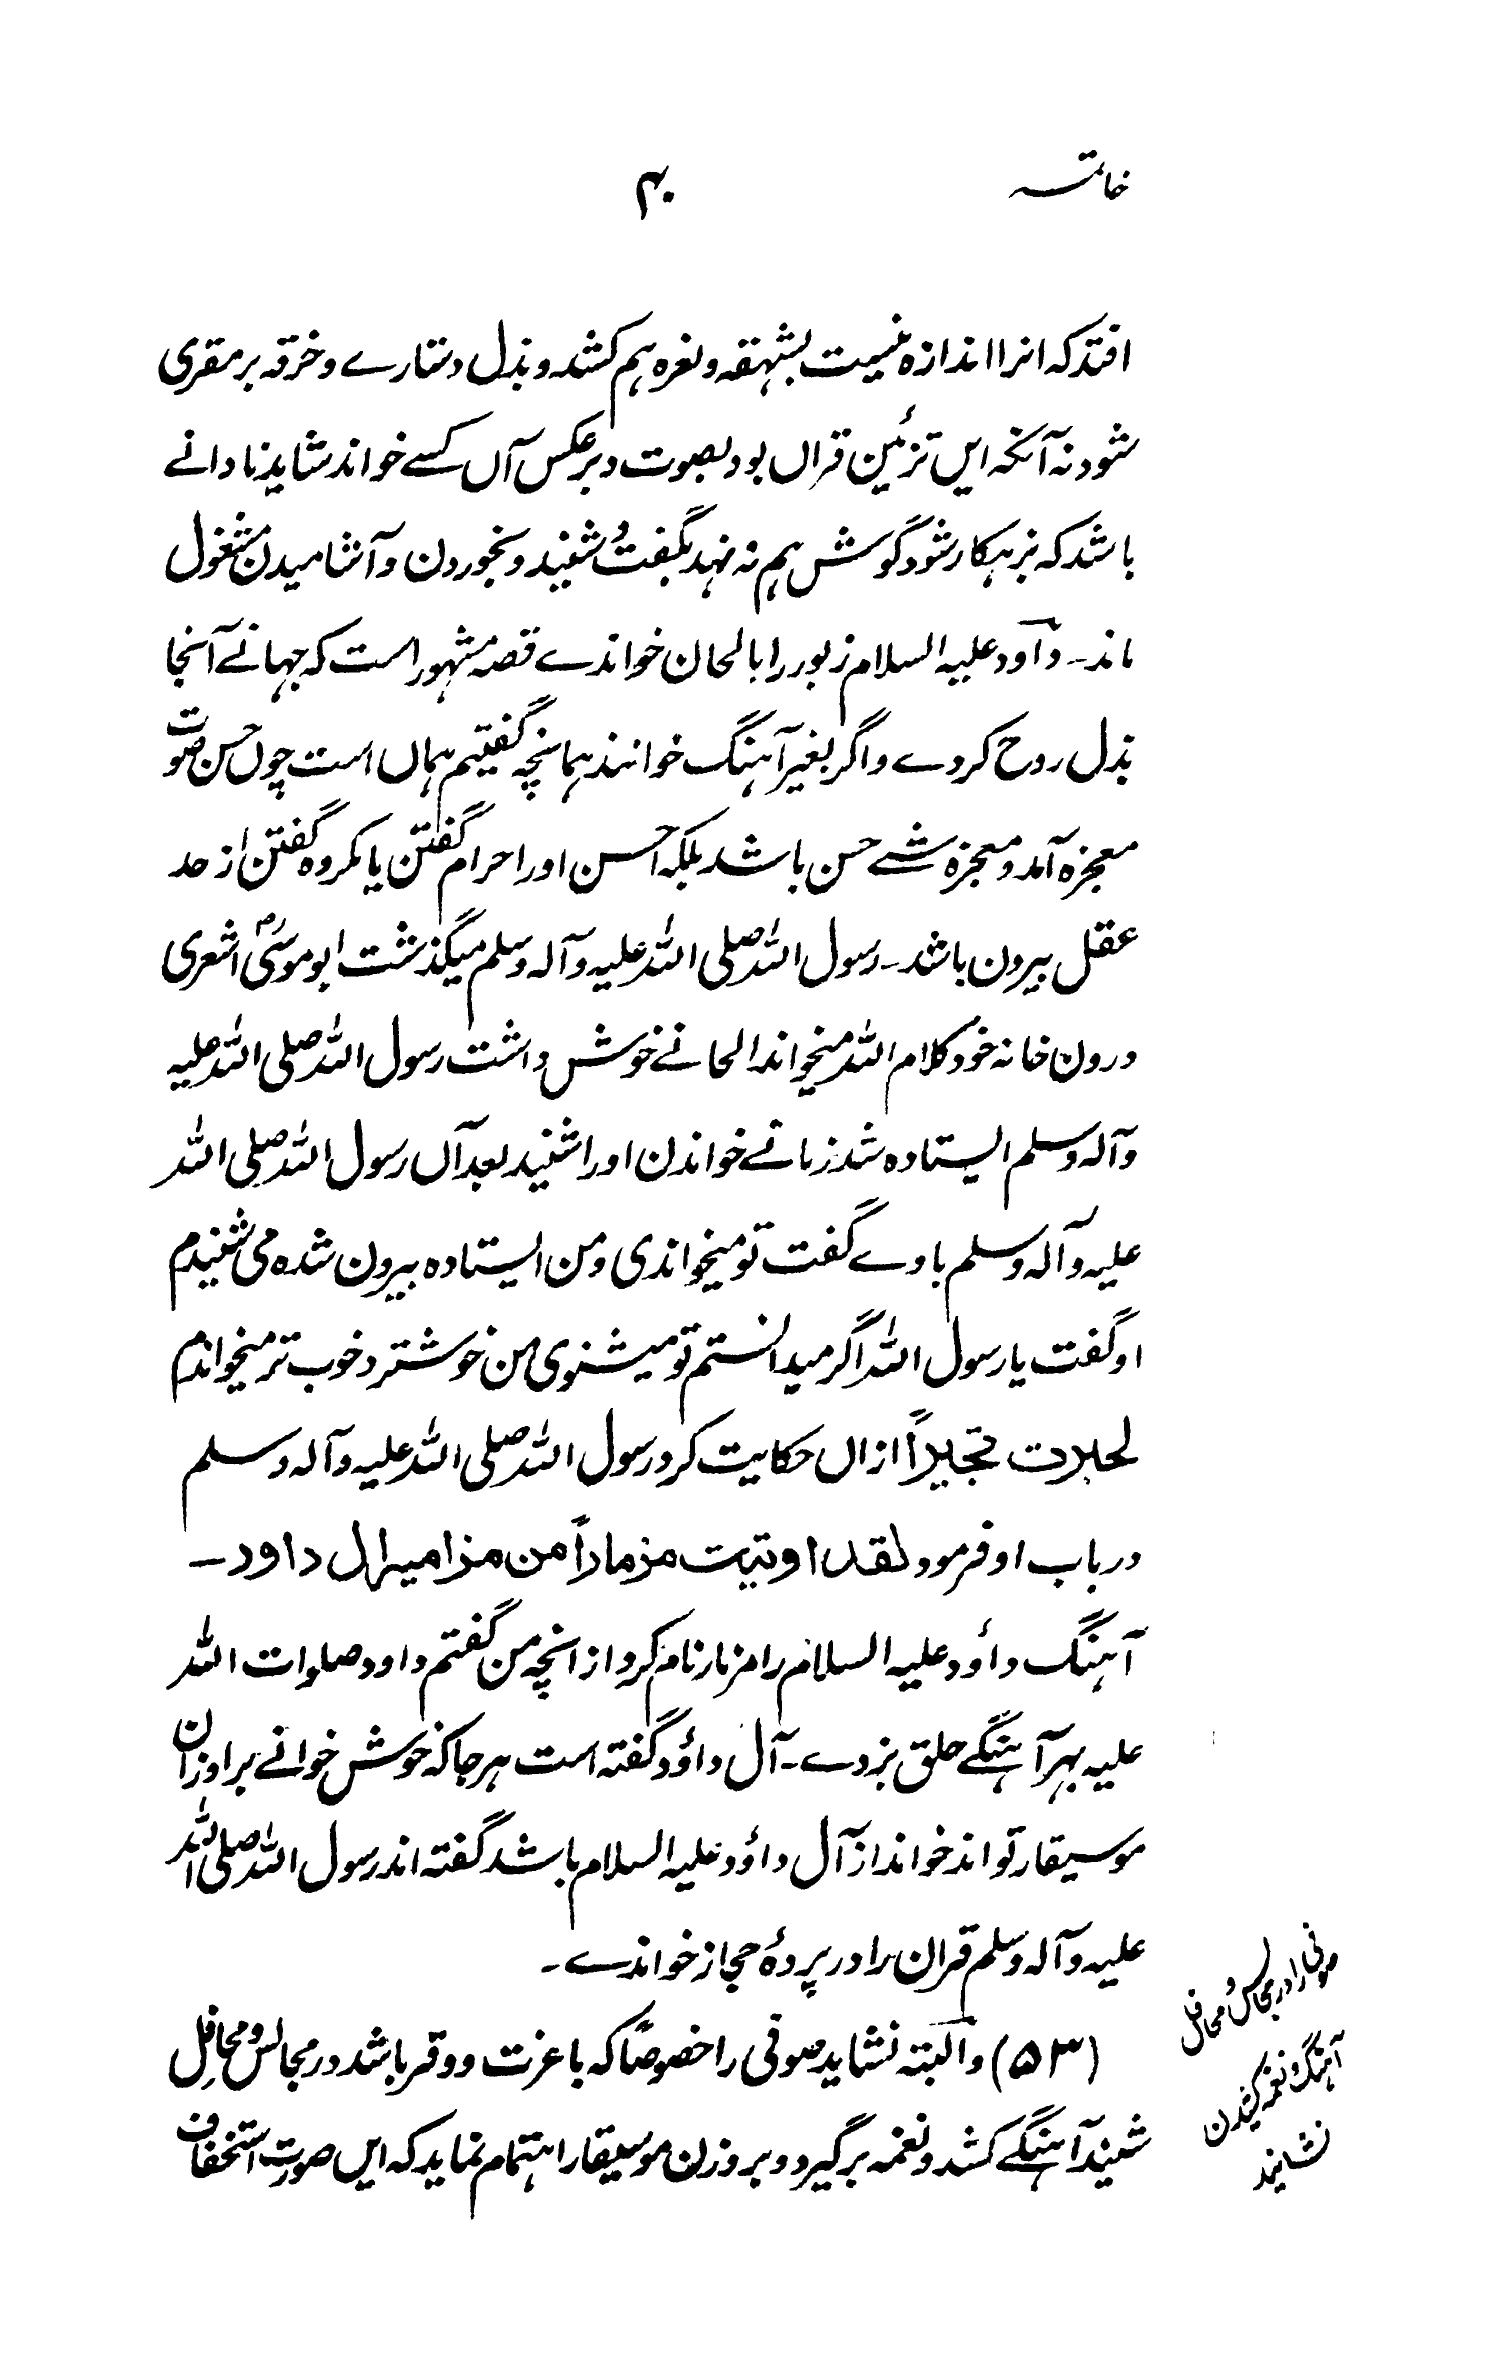 خاتمہ
۴۰
افتد کہ انرا اندازہ نیست بشہقہ و نعرہ ہم کشد و بذل دستارے و خرقہ بر مقری
شود نہ آنکہ ایں تزئین قرآں بود بصوت و برعکس آں کسے خواند شاید نادانے
باشد کہ بزہکار شود گوش ہم نہ نہد بگفت و شنید و بخوردن و آشامیدن مشغول
ماند۔ داود علیہ السلام زبور را بالحان خواندے قصہ مشہور است کہ جہانے آنجا
بذل روح کردے و اگر بغیر آہنگ خوانند ہمانچہ گفتیم ہماں است چوں حسن صوت
معجزہ آمد و معجزہ شے حسن باشد بلکہ احسن او را حرام گفتن یا مکروہ گفتن از حد
عقل بیرون باشد۔ رسول اللہ صلی اللہ علیہ و آلہ وسلم میگذشت ابو موسیٰ اشعری
درون خانہ خود کلام اللہ میخواند الحانے خوش داشت رسول اللہ صلی اللہ علیہ
و آلہ وسلم ایستادہ شد زمانے خواندن او را شنید بعد آں رسول اللہ صلی اللہ
علیہ و آلہ وسلم باوے گفت تو میخواندی و من ایستادہ بیرون شدہ می شنیدم
او گفت یا رسول اللہ اگر میدانستم تو میشنوی من خوشتر و خوب تر میخواندم
لحبرت تحبیراً ازاں حکایت کرد رسول اللہ صلی اللہ علیہ و آلہ وسلم
در باب او فرمود لقد اوتیت مزماراً من مزامیر ال داود۔
آہنگ داؤد علیہ السلام را مزمار نام کرد از انچہ من گفتم داود صلوات اللہ
علیہ بہر آہنگے حلق بزدے۔ آل داؤد گفتہ است ہر جا کہ خوش خوانے بر اوزان
موسیقار تواند خواند از آل داؤد علیہ السلام باشد گفتہ اند رسول اللہ صلی اللہ
علیہ و آلہ وسلم قرآن را در پردۂ حجاز خواندے۔
(۵۳) و البتہ نشاید صوفی را خصوصاً کہ با عزت و وقر باشد در مجالس و محافل
شیند آہنگے کشد و نغمہ برگیرد و بر وزن موسیقار اہتمام نماید کہ ایں صورت استخفاف
صوفی را در مجالس و محافل
آہنگ و نغمہ کشیدن
نشاید